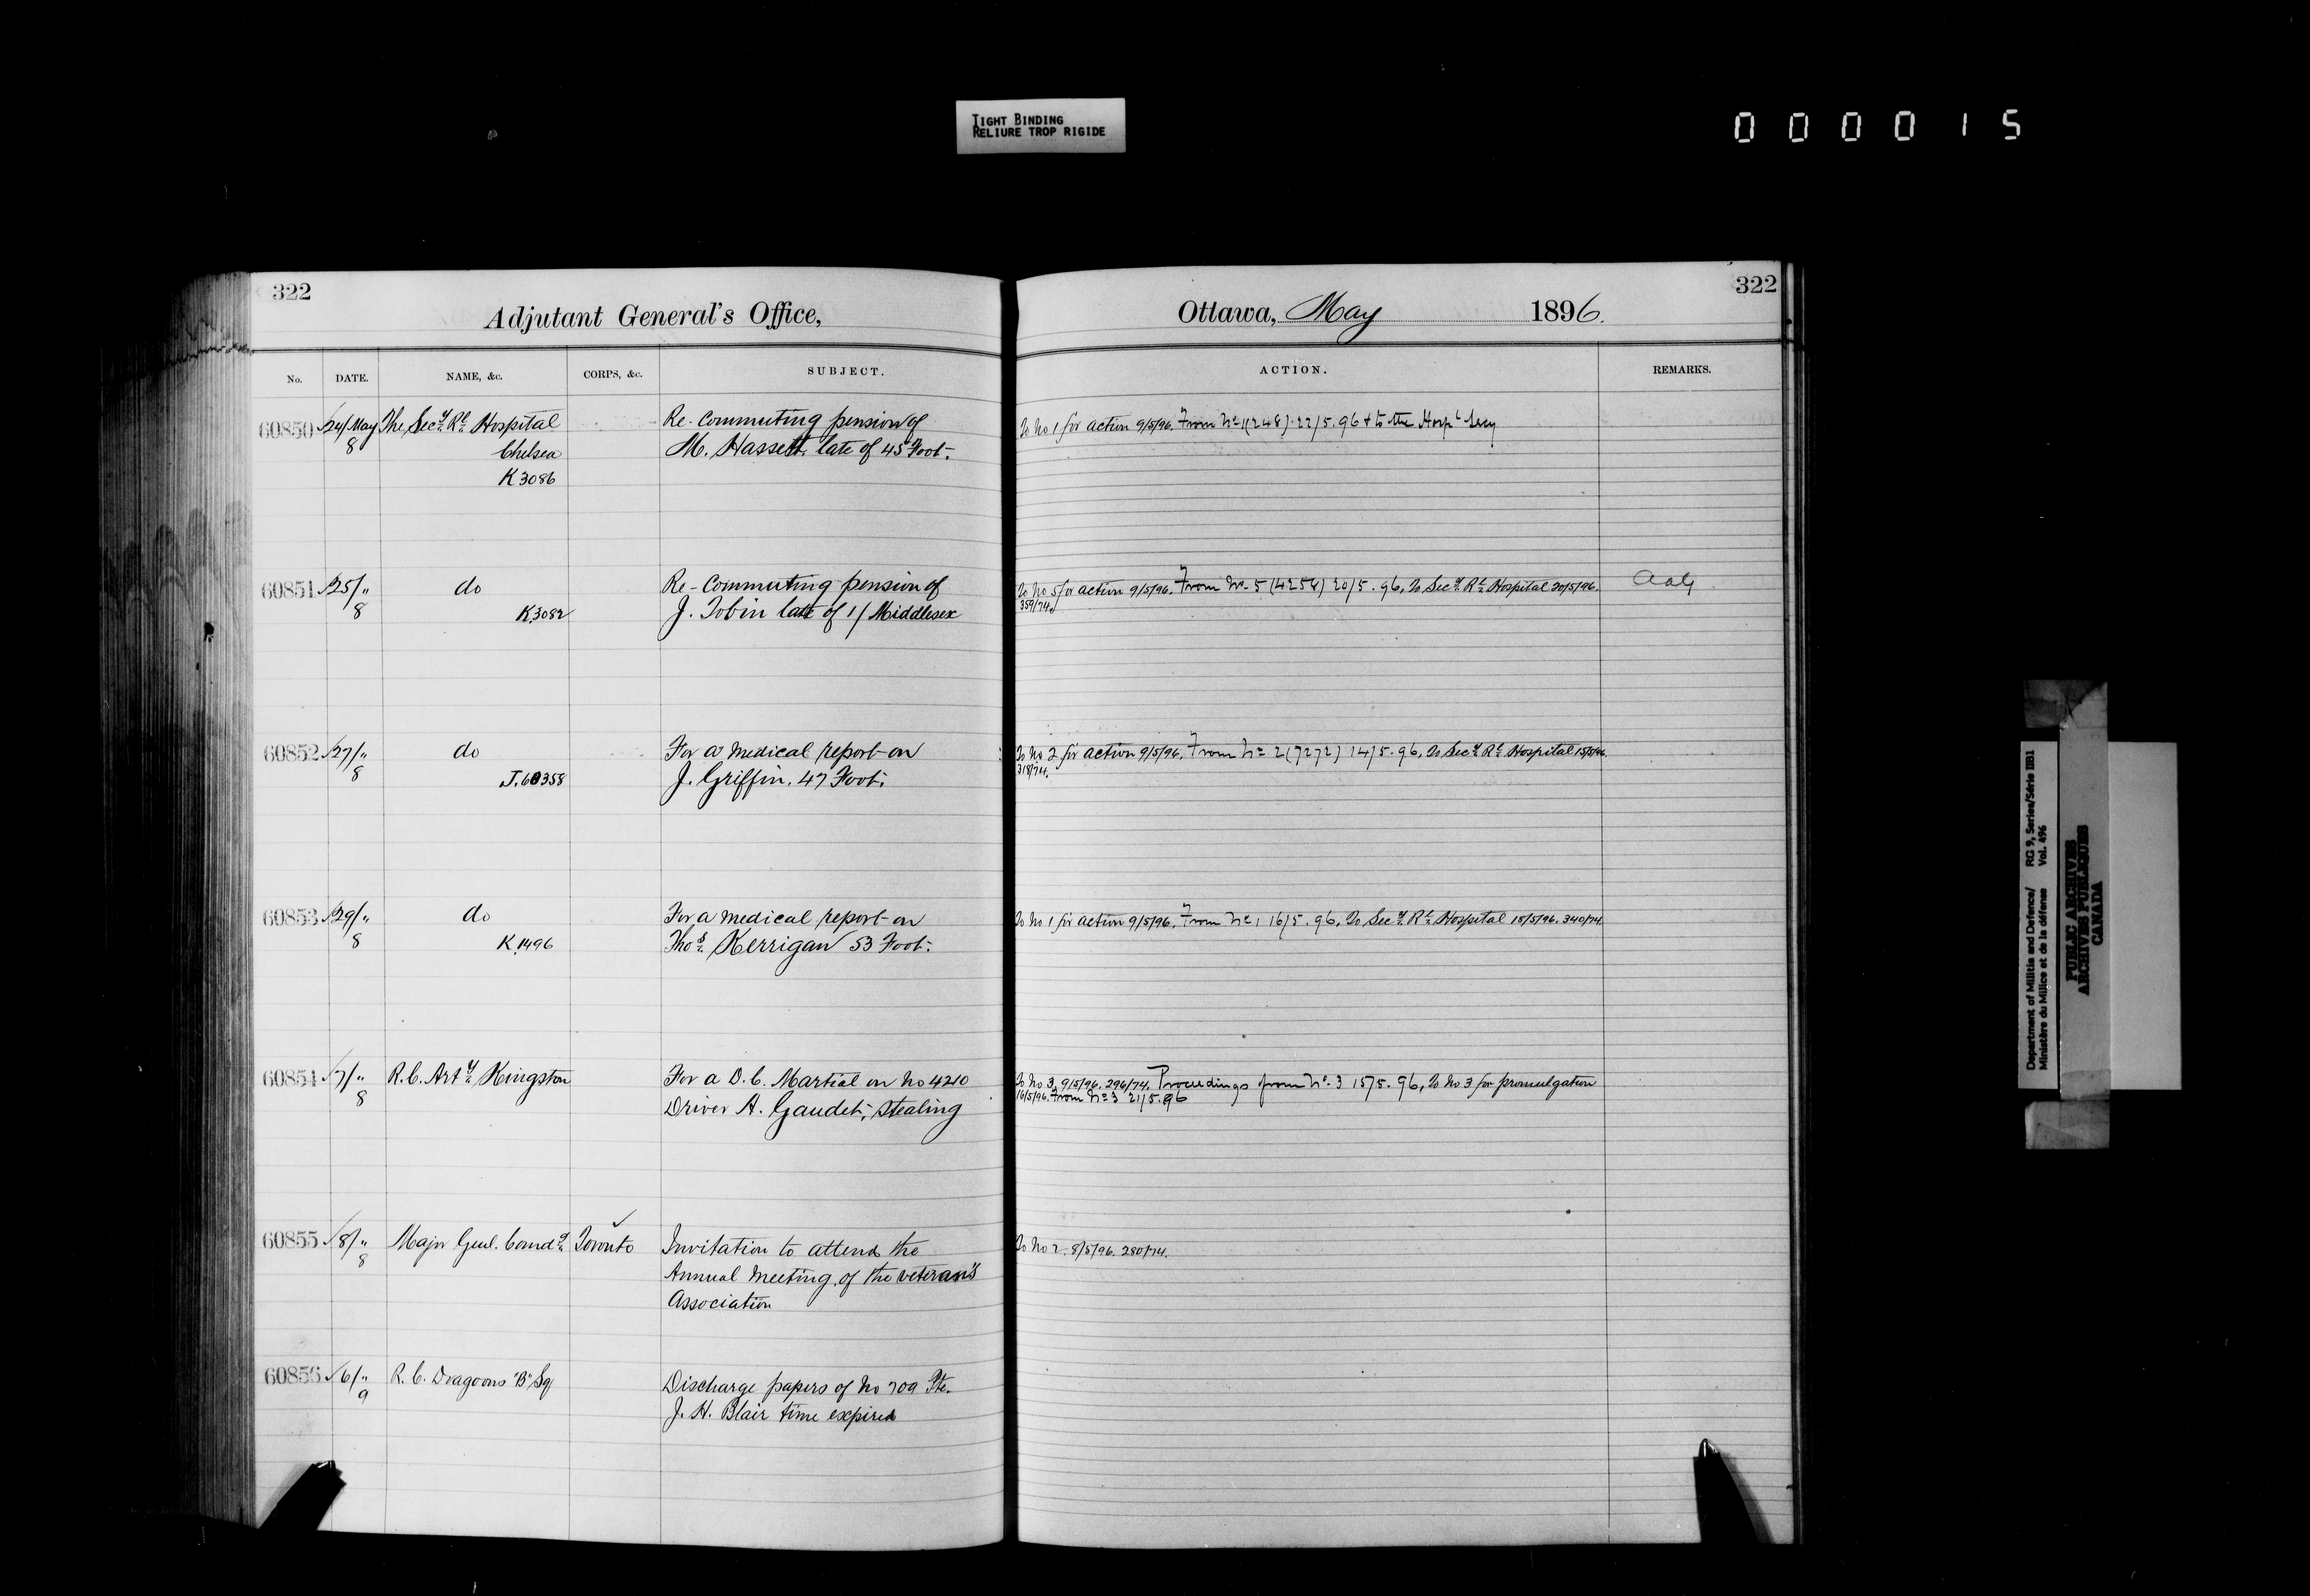 TIGHT BINDING
RELIURE TROP RIGIDE
000015
322
Adjutant General's Office,
No. DATE. NAME, &c. CORPS, &c. SUBJECT.
60850 24/May The Secy. Rl. Hospital Re-commuting pension of
8 Chelsea M. Hassett. late of 45 Foot.
K3086
60851 25/" do Re-Commuting pension of
8 K.3082 J. Tobin late of 1/Middlesex
60852 27/" do For a medical report on
8 J.60358 J. Griffin. 47 Foot.
60853 29/" do For a medical report on
8 K.1496 Thos. Kerrigan 53 Foot.
60854 7/" R.C. Arty. Kingston For a D.C. Martial on No 4210
8 Driver A. Gaudet; stealing
60855 8/" Major Genl. Comdg. Toronto Invitation to attend the
8 Annual Meeting of the veteran's
Association
60856 6/" R.C. Dragoons "B" Sq Discharge papers of No 709 Pte.
9 J. H. Blair time expired
322
Ottawa, May 1896.
ACTION. REMARKS.
To No 1 for action 9/5/96. From No. 1(248) 22/5.96 & to the Hospl Secy
To No 5 for action 9/5/96. From No. 5 (4256) 20/5.96, To Secy. Rl. Hospital 20/5/96.
359/74.
To No 2 for action 9/5/96. From No 2(7272) 14/5.96, To Secy. Rl. Hospital 15/5/96.
318/74.
To No 1 for action 9/5/96. From No 1 16/5.96, To Secy. Rl. Hospital 18/5/96. 340/74.
To No 3, 9/5/96. 296/74. Proceedings from No. 3 15/5.96, To No 3 for promulgation
16/5/96. From No 3 21/5.96
To No 2. 8/5/96. 280/74.
Department of Militia and Defence/ RG 9, Series/Série IIB1
Ministère du Milice et de la défense Vol. 496
PUBLIC ARCHIVES
ARCHIVES PUBLIQUES
CANADA